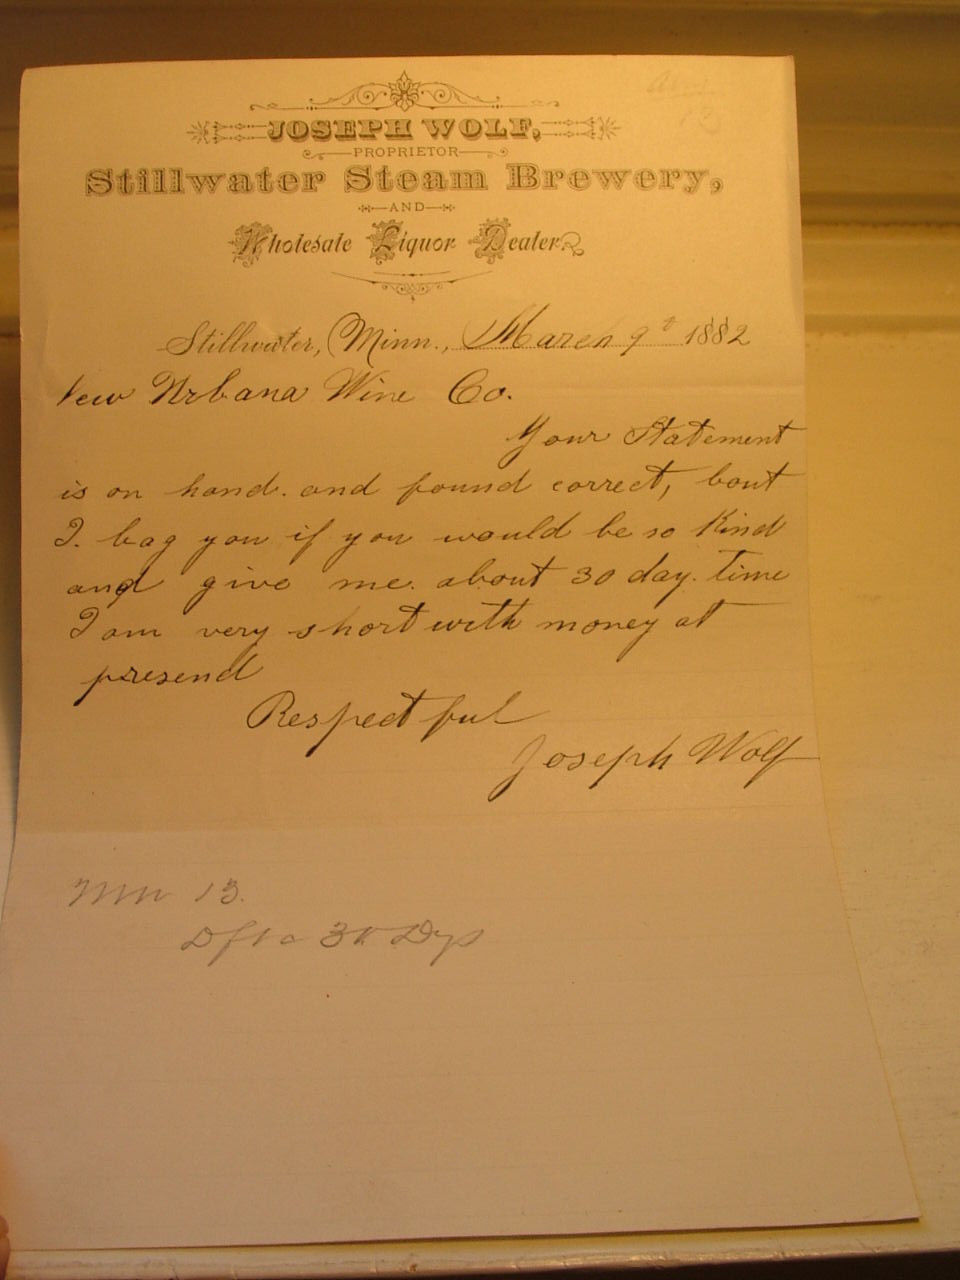 JOSEPH WOLF,
PROPRIETOR
Stillwater Steam Brewery,
AND
Wholesale Liquor Dealer.
Stillwater, Minn., March 9t 1882
New Urbana Wine Co.
Your Statement
is on hand. and found correct, bout
I. bag you if you would be so Kind
and give me. about 30 day. time
I am very short with money at
presend
Respectful
Joseph Wolf
13.
30 Dys